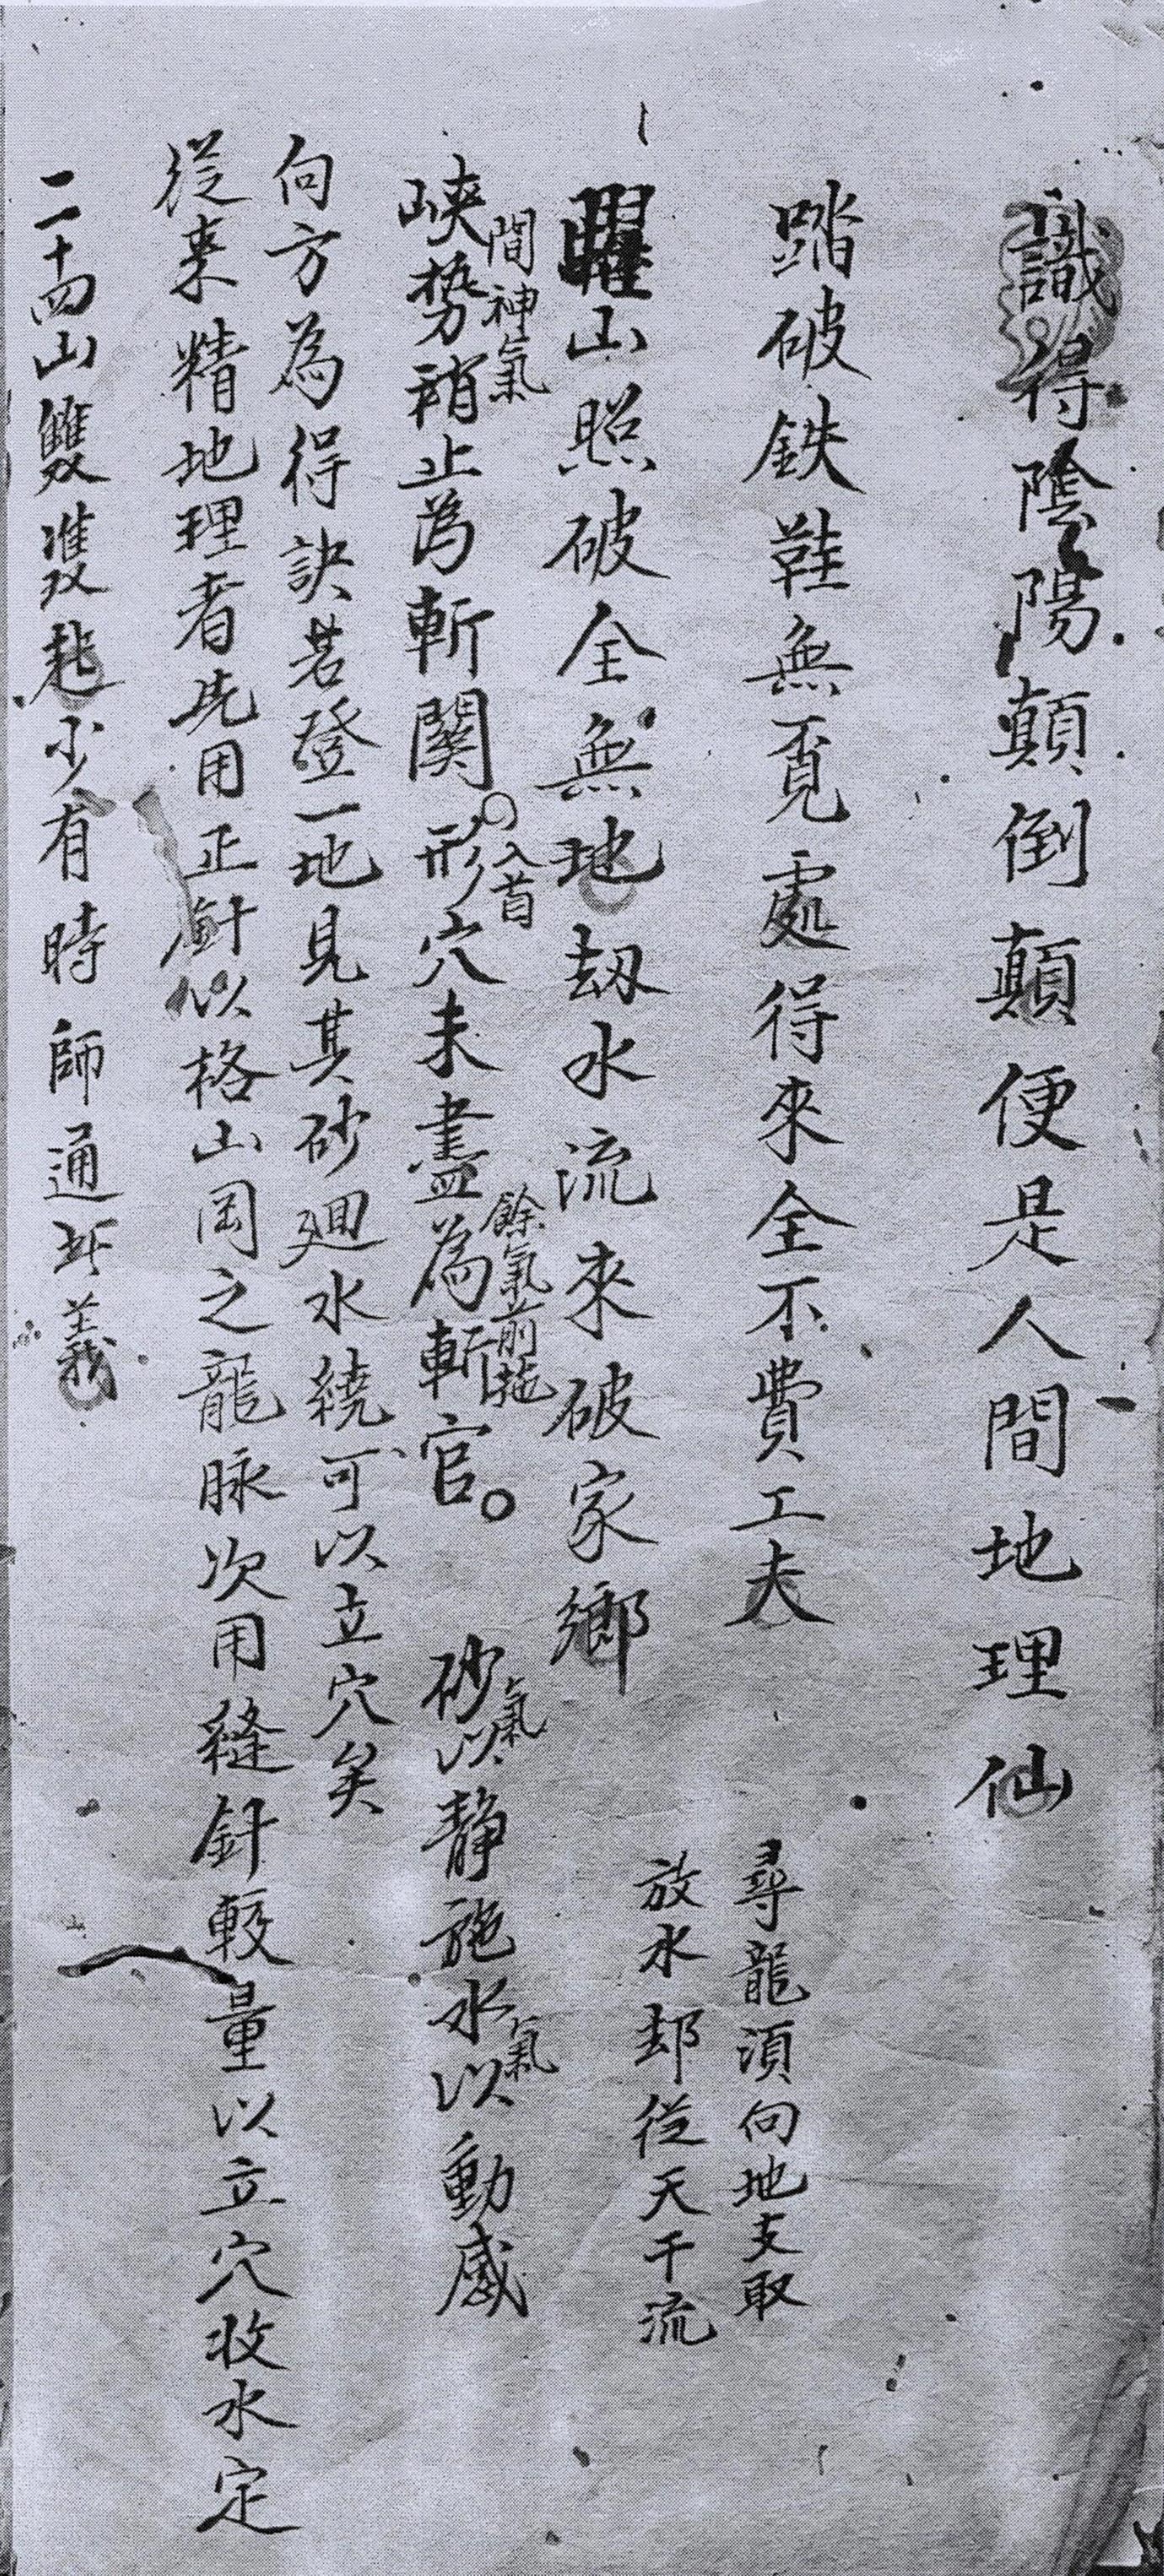 識得陰陽顛倒顛便是人間地理仙
踏破鉄鞋無覓處得來全不費工夫
尋龍須向地支取
放水却從天干流
曜山照破全無地刼水流來破家鄉
間神氣
入首
餘氣前拖
氣
氣
峽勢稍止為斬關〇形穴未盡為斬官。 砂以靜施水以動感
向方為得訣若登一地見其砂廻水繞可以立穴矣
從来精地理者先用正針以格山岡之龍脉次用縫針較量以立穴收水定
二十四山雙雙起少有時師通此義